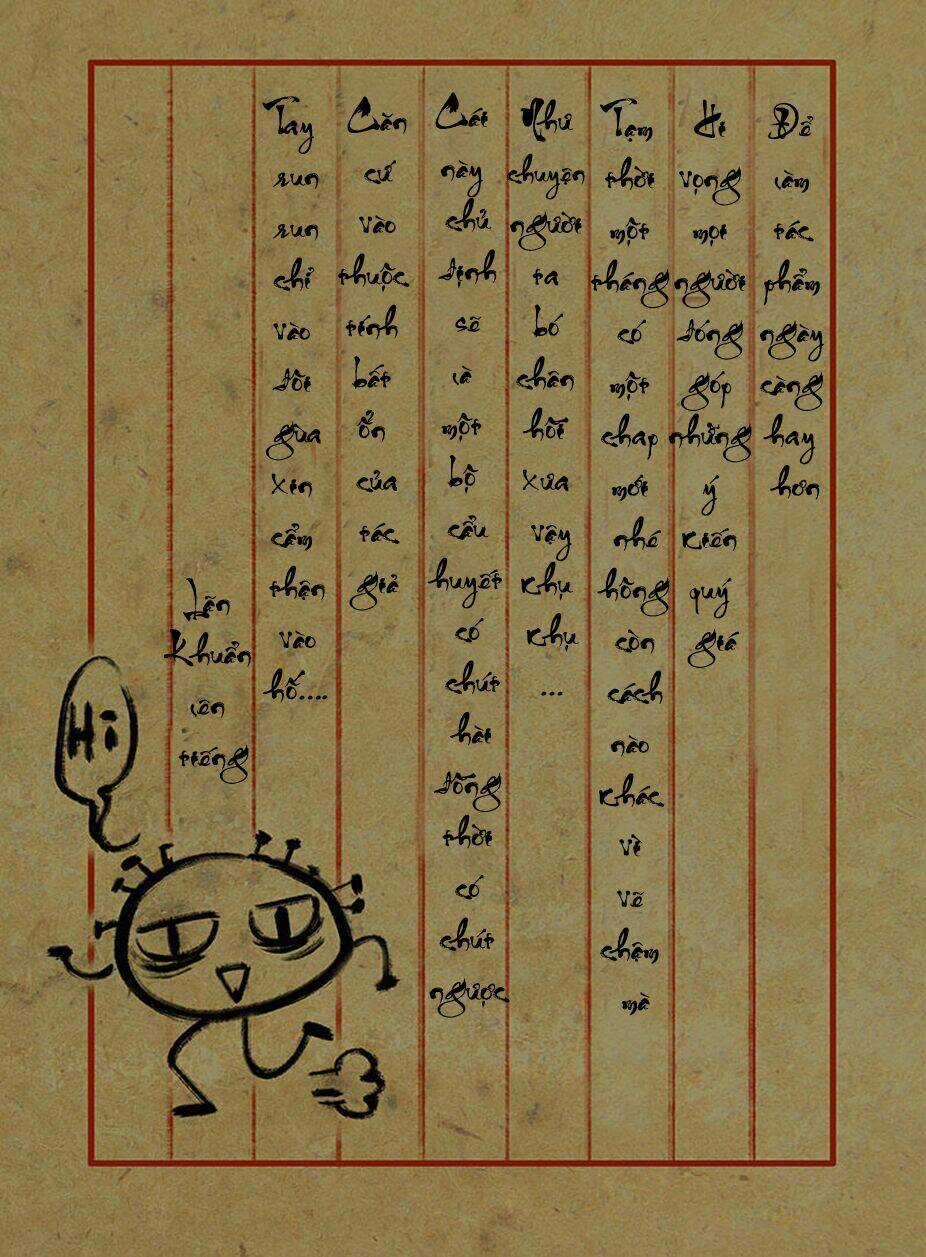 Hi
Lãn Khuẩn lên tiếng
Tay run run chỉ vào đôi gùa xin cẩm thận vào hố....
Căn cứ vào thuộc tính bất ổn của tác giả
Cái này chủ định sẽ là một bộ cẩu huyết có chút hài đồng thời có chút ngược
Như chuyện người ta bó chân hồi xưa vậy khụ khụ ...
Tạm thời một tháng có một chap mới nhé hông còn cách nào khác vì vẽ chậm mà
Hi vọng mọi người đóng góp những ý kiến quý giá
Để làm tác phẩm ngày càng hay hơn